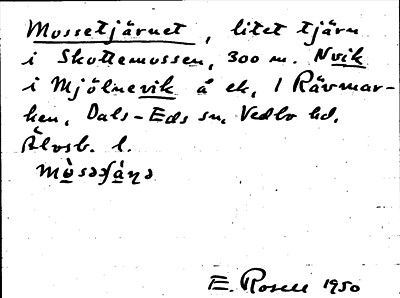 Mossetjärnet, litet tjärn
i Skottemossen, 300 m. N vik
i Mjölnevik å ek, i Rävmar-
ken, Dals-Eds sn, Vedbo hd.
Älvsb. l.
E. Rosell 1950